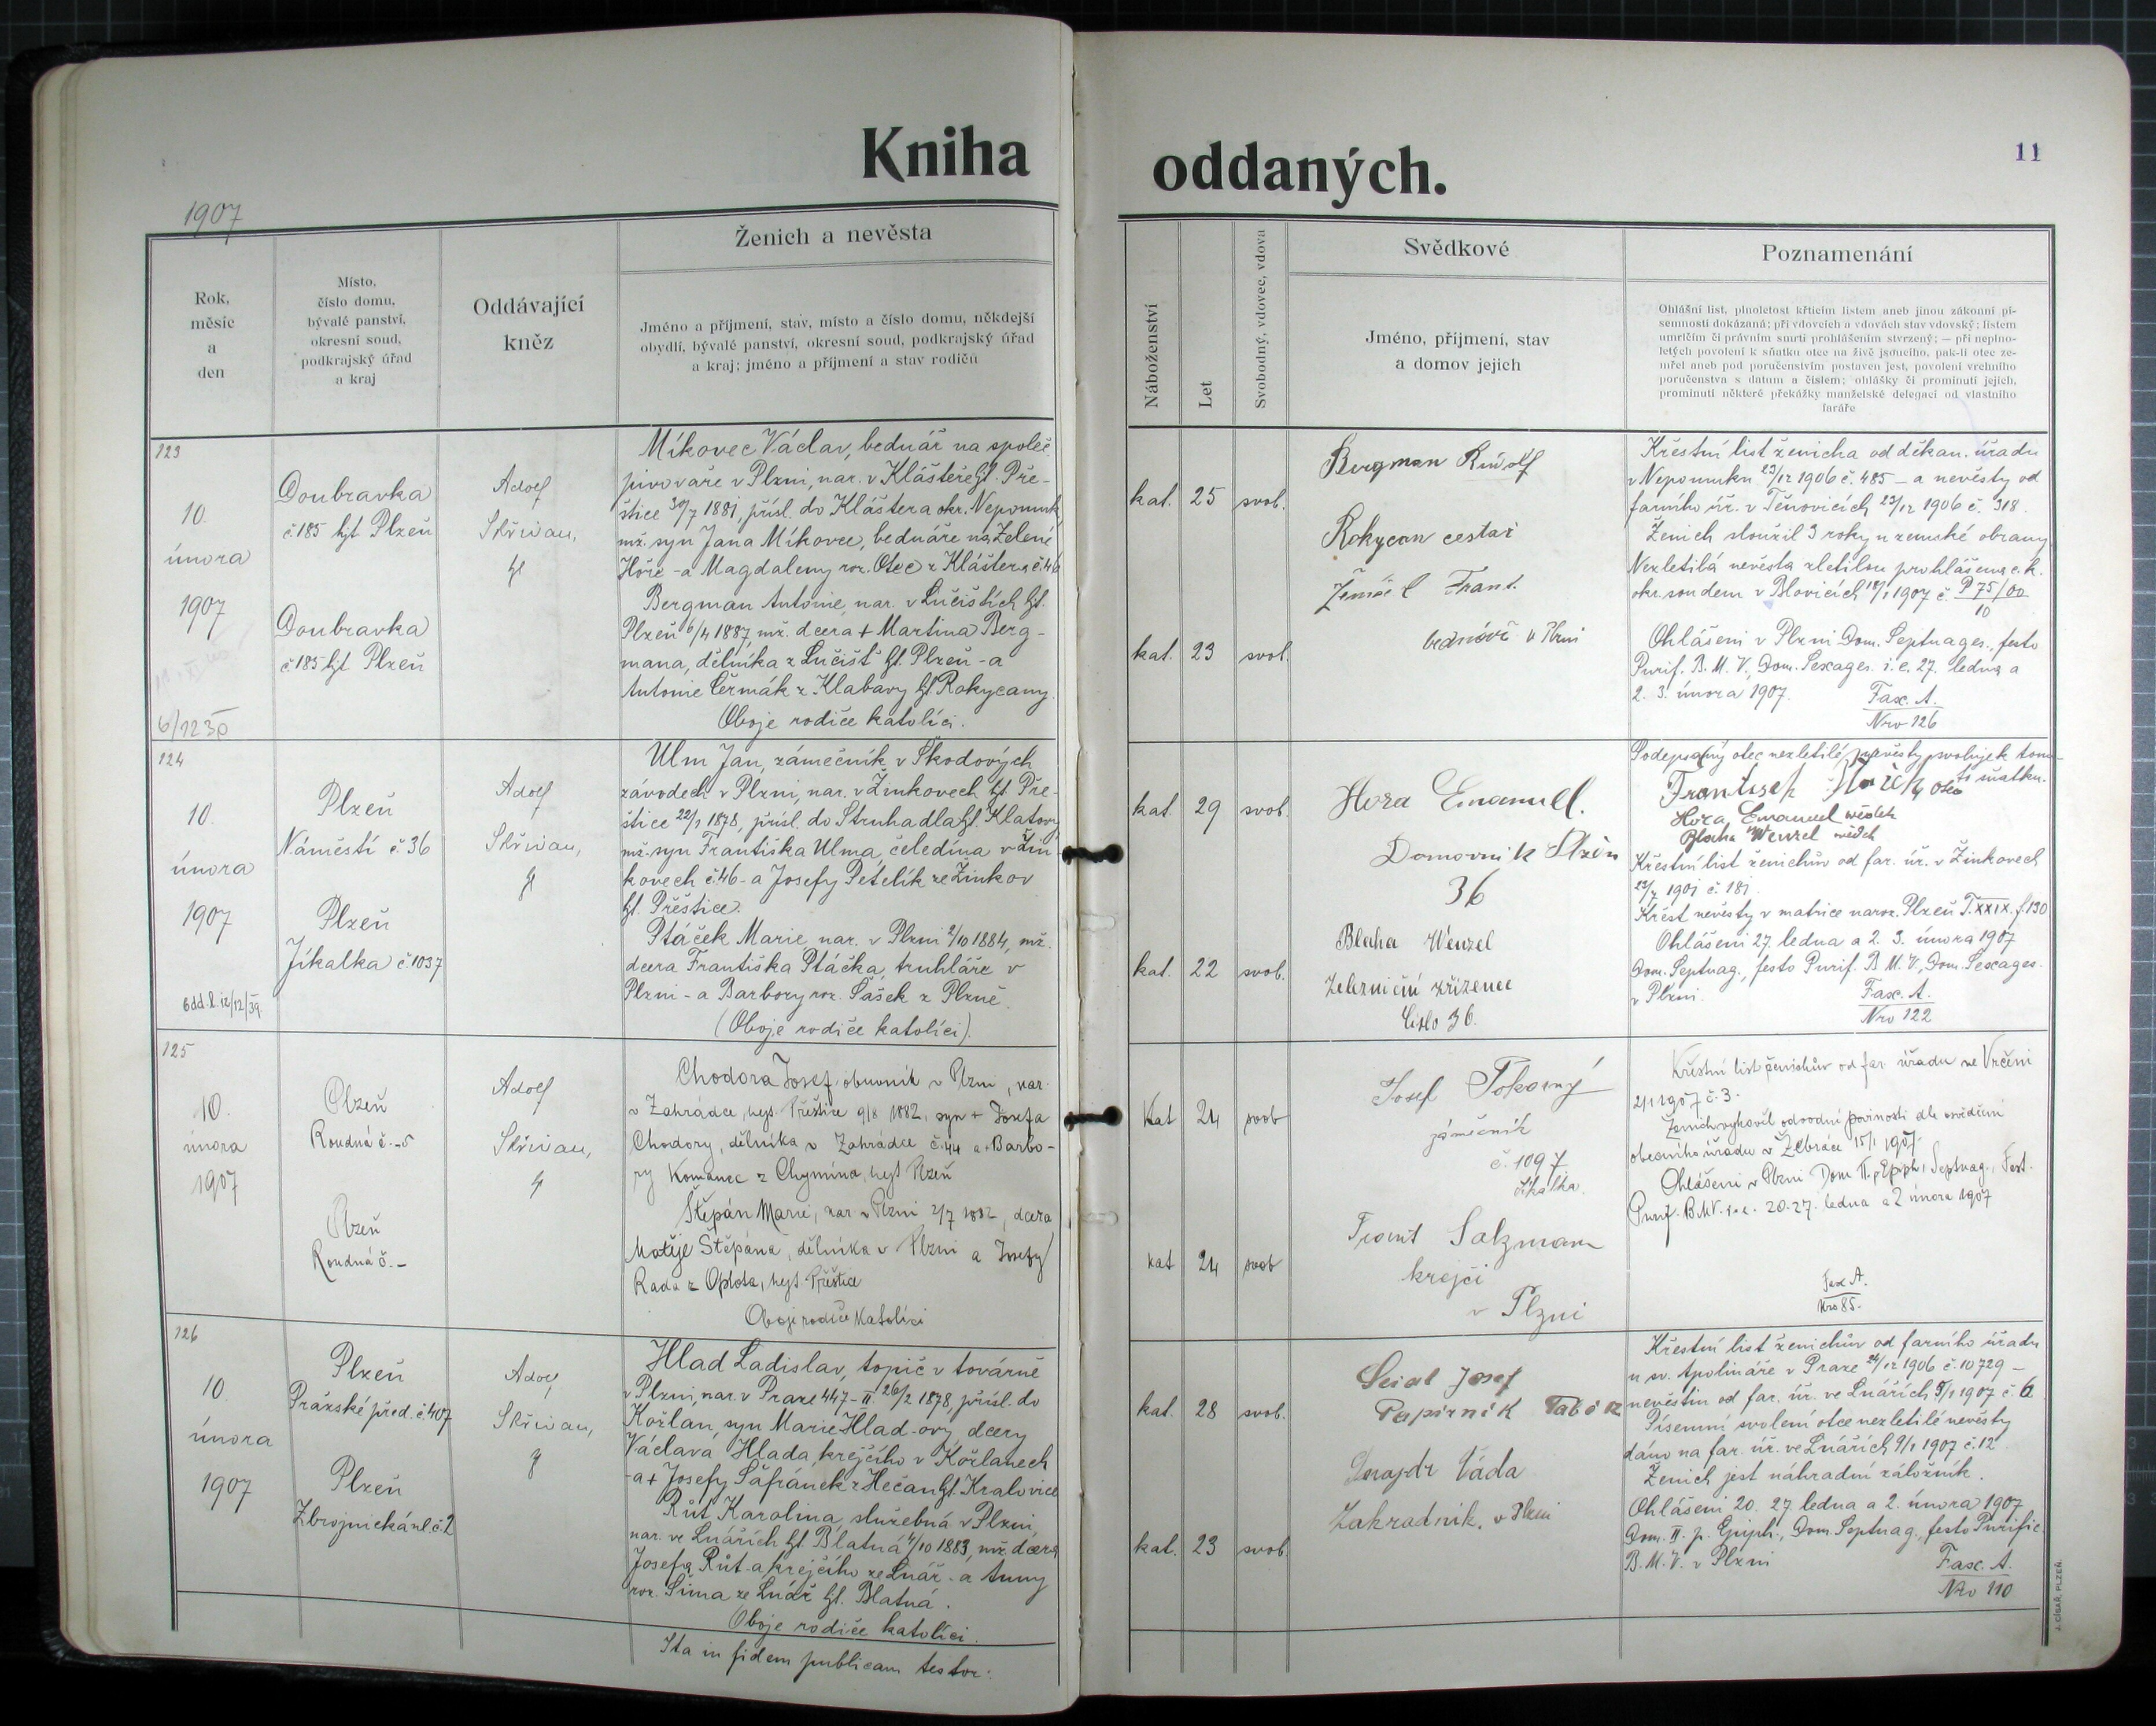 Kniha oddaných.
11
1907
Rok, měsíc a den
Místo, číslo domu, bývalé panství, okresní soud, podkrajský úřad a kraj
Oddávající kněz
Ženich a nevěsta
Jméno a příjmení, stav, místo a číslo domu, někdejší
obydlí, bývalé panství, okresní soud, podkrajský úřad
a kraj; jméno a příjmení a stav rodičů
Náboženství
Let
Svobodný, vdovec, vdova
Svědkové
Jméno, příjmení, stav
a domov jejich
Poznamenání
Ohlášní list, plnoletost křticím listem aneb jinou zákonní pí-
semností dokázaná; při vdovcích a vdovách stav vdovský; listem
umrlčím či právním smrti prohlášením stvrzený; — při neplno-
letých povolení k sňatku otce na živě jsoucího, pak-li otec ze-
mřel aneb pod poručenstvím postaven jest, povolení vrchního
poručenstva s datum a číslem; ohlášky či prominutí jejich,
prominutí některé překážky manželské delegací od vlastního
faráře
123
10.
února
1907
6/12 30
Doubravka
č. 185 hjt Plzeň
Doubravka
č. 185 hjt Plzeň
Adolf
Skřivan,
Míkovec Václav, bednář na společ.
pivováře v Plzni, nar. v Klášteře hjt. Pře-
štice 30/7 1881, přísl. do Kláštera okr. Nepomuk,
mž. syn Jana Míkovce, bednáře na Zelené
Hoře - a Magdaleny roz. Otec z Kláštera č. 46
Bergman Antonie, nar. v Lučištích hjt.
Plzeň 6/4 1887, mž. dcera + Martina Berg-
mana, dělníka z Lučišť hjt. Plzeň - a
Antonie Čermák z Klabavy hjt Rokycany.
Oboje rodiče katolíci.
kat. 25 svob.
kat. 23 svob.
Bergman Rudolf
Rokycan cestář
Frant.
bednář v Plzni
Křestní list ženicha od děkan. úřadu
v Nepomuku 23/12 1906 č. 485 - a nevěsty od
farního úř. v Těnovicích 23/12 1906 č. 318.
Ženich sloužil 3 roky u zemské obrany.
Nezletilá nevěsta zletilou prohlášena c. k.
okr. soudem v Blovicích 18/1 1907 č. P 75/00
10
Ohlášeni v Plzni Dom. Septuages., festo
Purif. B. M. V., Dom. Sexages. i. e. 27. ledna a
2. 3. února 1907.
Fasc. A.
Nro 126
124
10.
února
1907
Plzeň
Náměstí č. 36
Plzeň
Jíkalka č. 1037
Adolf
Skřivan,
Ulm Jan, zámečník v Škodových
závodech v Plzni, nar. v Žinkovech hjt. Pře-
štice 22/1 1878, přísl. do Struhadla hjt. Klatovy
mž. syn Františka Ulma, čeledína v Žin-
kovech č. 46 - a Josefy Petelík ze Žinkov
hjt. Přeštice.
Ptáček Marie, nar. v Plzni 2/10 1884, mž.
dcera Františka Ptáčka, truhláře v
Plzni - a Barbory roz. Šašek z Plzně.
(Oboje rodiče katolíci).
kat. 29 svob.
kat. 22 svob.
Hora Emanuel.
Domovník Plzen
36
Blaha Wenzel
Železniční zřízenec
Číslo 36.
Podepsaný otec nezletilé nevěsty svoluje k tomu-
to sňatku.
František Ptáček otec
Hora Emanuel svědek
Blaha Wenzel svědek
Křestní list ženichův od far. úř. v Žinkovech
23/7 1901 č. 181.
Křest nevěsty v matrice naroz. Plzeň T. XXIX. f. 130
Ohlášeni 27. ledna a 2. 3. února 1907
Dom. Septuag., festo Purif. B. M. V., Dom. Sexages.
v Plzni.
Fasc. A.
Nro 122
125
10.
února
1907
Plzeň
Roudná č. - 5
Plzeň
Roudná č. -
Adolf
Skřivan,
Chodora Josef, obuvník v Plzni, nar.
v Zahrádce, hejt. Přeštice 9/8 1882, syn + Josefa
Chodory, dělníka v Zahrádce č. 44 a + Barbo-
ry Komanec z Chymína, hejt Plzeň
Štěpán Marie, nar. v Plzni 2/7 1882, dcera
Matěje Štěpána, dělníka v Plzni a Josefy
Rada z Oplota, hejt. Přeštice
Oboji rodiče Katolíci
Kat 24 svob
Kat 24 svob
Josef Pokorný
zámečník
č. 1097
Frant Salzmann
krejčí
v Plzni
Křestní list ženichův od far úřadu ve Vrčeni
2/1 1907 č. 3.
Ženich vykonal odvodní povinnosti dle osvědčení
obecního úřadu v Žebráce 15/1 1907.
Ohlášeni v Plzni Dom II. p. Epiph, Septuag., Fest.
Purif. B. M. V. i. e. 20. 27. ledna a 2 února 1907
Fasc A.
Nro 85.
126
10.
února
1907
Plzeň
Pražské před. č. 407
Plzeň
Zbrojnická ul. č. 2
Adolf
Skřivan,
Hlad Ladislav, topič v továrně
v Plzni, nar. v Praze 447-II. 26/2 1878, přísl. do
Kožlan, syn Marie Hlad-ovy, dcery
Václava Hlada, krejčího v Kožlanech
- a + Josefy Šafránek z Hečan hjt. Kralovice
Růt Karolina, služebná v Plzni,
nar. ve Lnářích hjt Blatná 4/10 1883, mž. dcera
Josefa Růt-a, krejčího ze Lnář - a Anny
roz. Šíma ze Lnář hjt. Blatná.
Oboje rodiče katolíci.
Ita in fidem publicam testor:
kat. 28 svob.
kat. 23 svob.
Josef
Papírník
Láda
Zahradník. v Plzni
Křestní list ženichův od farního úřadu
u sv. Apolináře v Praze 24/12 1906 č. 10729 -
nevěstin od far. úř. ve Lnářích 5/1 1907 č. 6.
Písemní svolení otce nezletilé nevěsty
dáno na far. úř. ve Lnářích 9/1 1907 č. 12.
Ženich jest náhradní záložník.
Ohlášeni 20. 27 ledna a 2. února 1907
Dom. II. p. Epiph., Dom. Septuag., festo Purific.
B. M. V. v Plzni
Fasc. A.
Nro 110
J. CÍSAŘ, PLZEŇ.